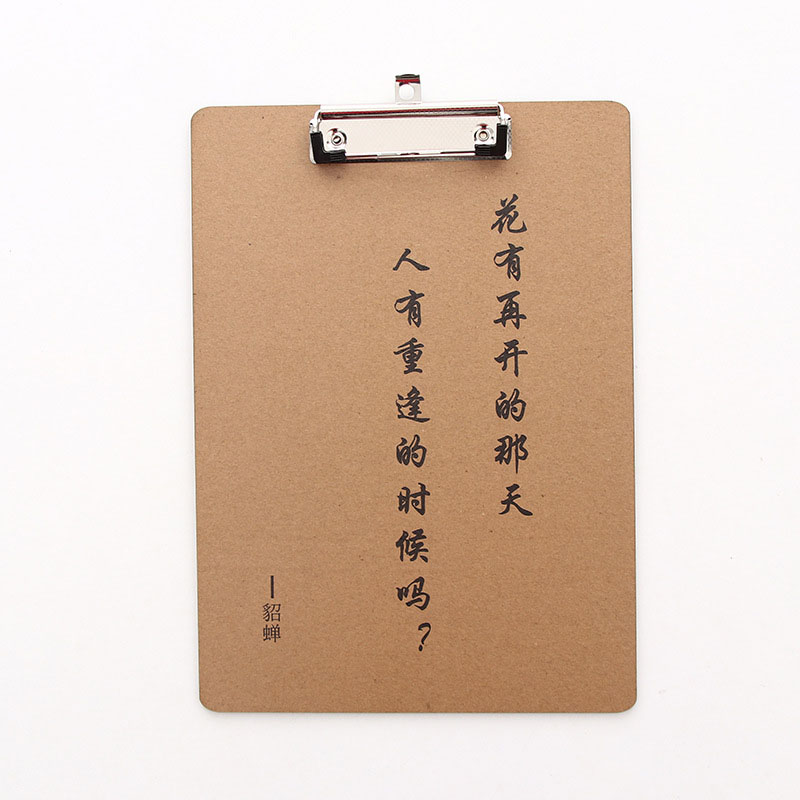 花有再开的那天
人有重逢的时候吗?
—貂蝉